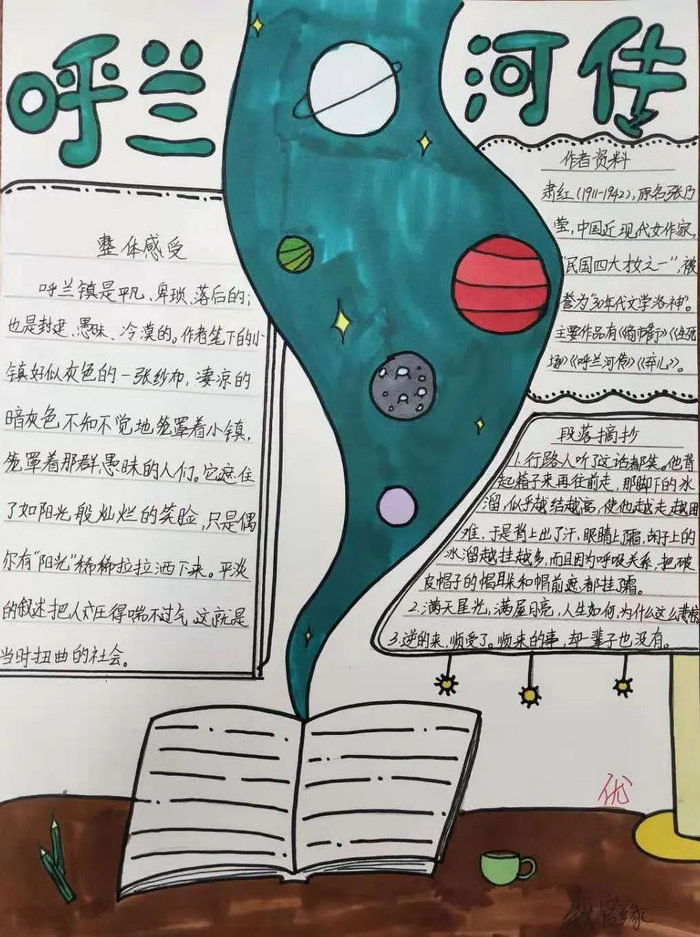 呼兰河传
整体感受
呼兰镇是平凡、卑琐、落后的;
也是封建、愚昧、冷漠的。作者笔下的小
镇好似灰色的一张纱布,凄凉的
暗灰色不知不觉地笼罩着小镇,
笼罩着那群愚昧的人们。它遮住
了如阳光般灿烂的笑脸,只是偶
尔有“阳光”稀稀拉拉洒下来。平淡
的叙述把人们压得喘不过气,这就是
当时扭曲的社会。
作者资料
肃红(1911-1942),原名张乃
莹,中国近现代女作家,
“民国四大才女之一”,被
誉为“30年代文学洛神”。
主要作品有《商市街》《生死
场》《呼兰河传》《弃儿》。
段落摘抄
1.行路人听了这话都笑。他背
起箱子来再往前走,那脚下的冰
溜,似乎越结越高,使他越走越困
难,于是背上出了汗,眼睛上霜,胡子上的
冰溜越挂越多,而且因为呼吸关系,把破
皮帽子的帽耳朵和帽前遮都挂霜。
2.满天星光,满屋月亮,人生如何,为什么这么悲凉
3.逆的来,顺受了。顺来的事,却一辈子也没有。
优